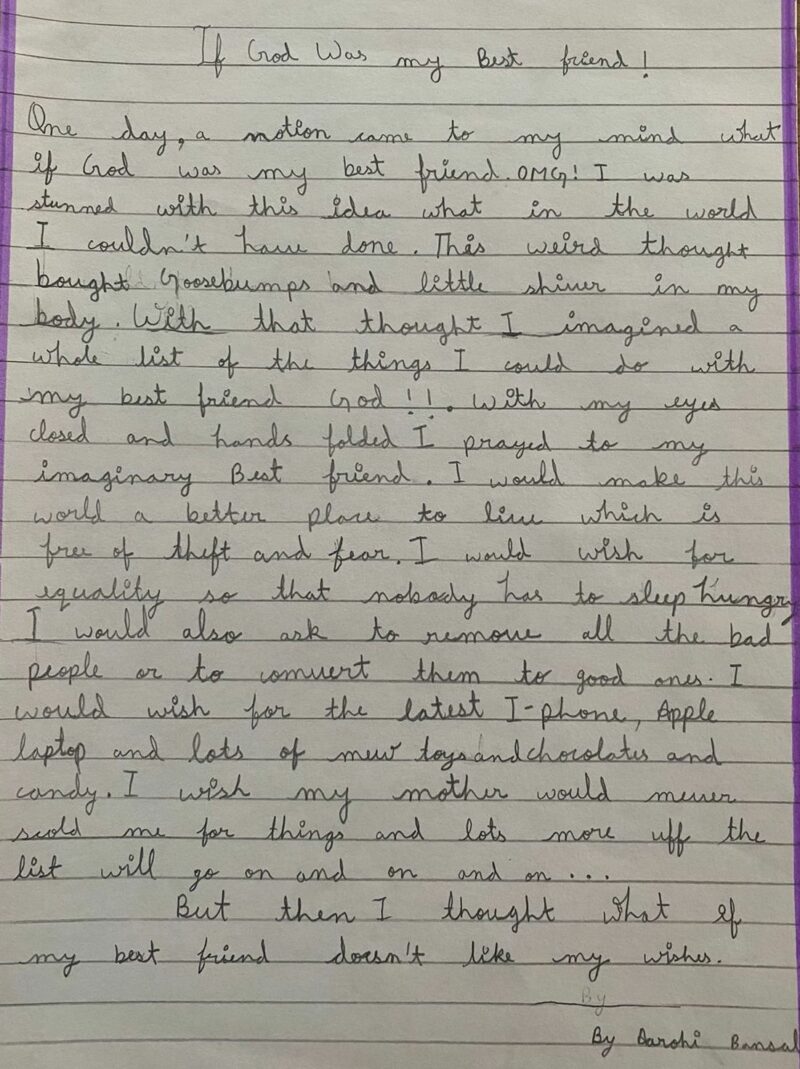 If God Was my Best friend!
One day, a notion came to my mind what
if God was my best friend. OMG! I was
stunned with this idea what in the world
I couldn't have done. This weird thought
bought Goosebumps and little shiver in my
body. With that thought I imagined a
whole list of the things I could do with
my best friend God!!. With my eyes
closed and hands folded I prayed to my
imaginary Best friend. I would make this
world a better place to live which is
free of theft and fear. I would wish for
equality so that nobody has to sleep hungry
I would also ask to remove all the bad
people or to convert them to good ones. I
would wish for the latest I-phone, Apple
laptop and lots of new toys and chocolates and
candy. I wish my mother would never
scold me for things and lots more uff the
list will go on and on and on...
But then I thought what if
my best friend doesn't like my wishes.
By
By Aarohi Bansal